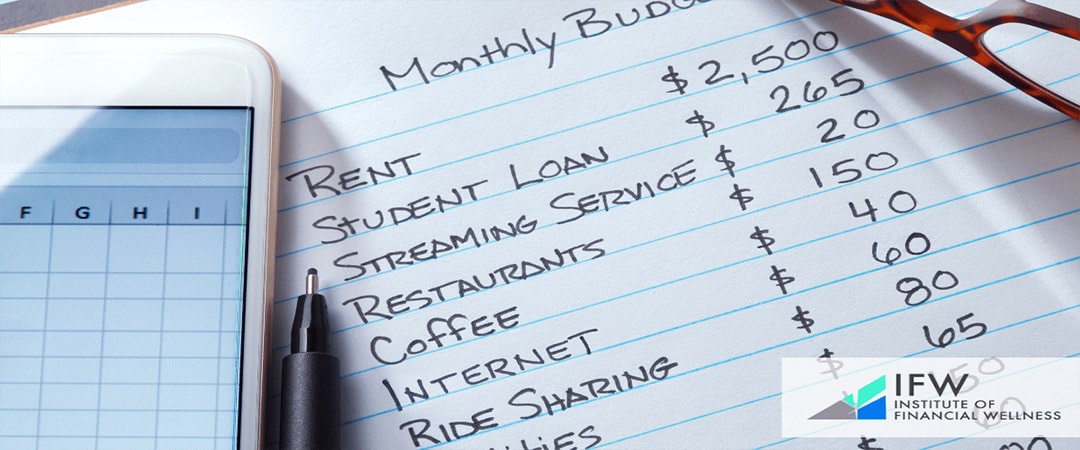 Monthly BUDG
RENT $ 2,500
STUDENT LOAN $ 265
STREAMING SERVICE $ 20
RESTAURANTS $ 150
COFFEE $ 40
INTERNET $ 60
RIDE SHARING $ 80
$ 65
F G H I
IFW
INSTITUTE OF
FINANCIAL WELLNESS